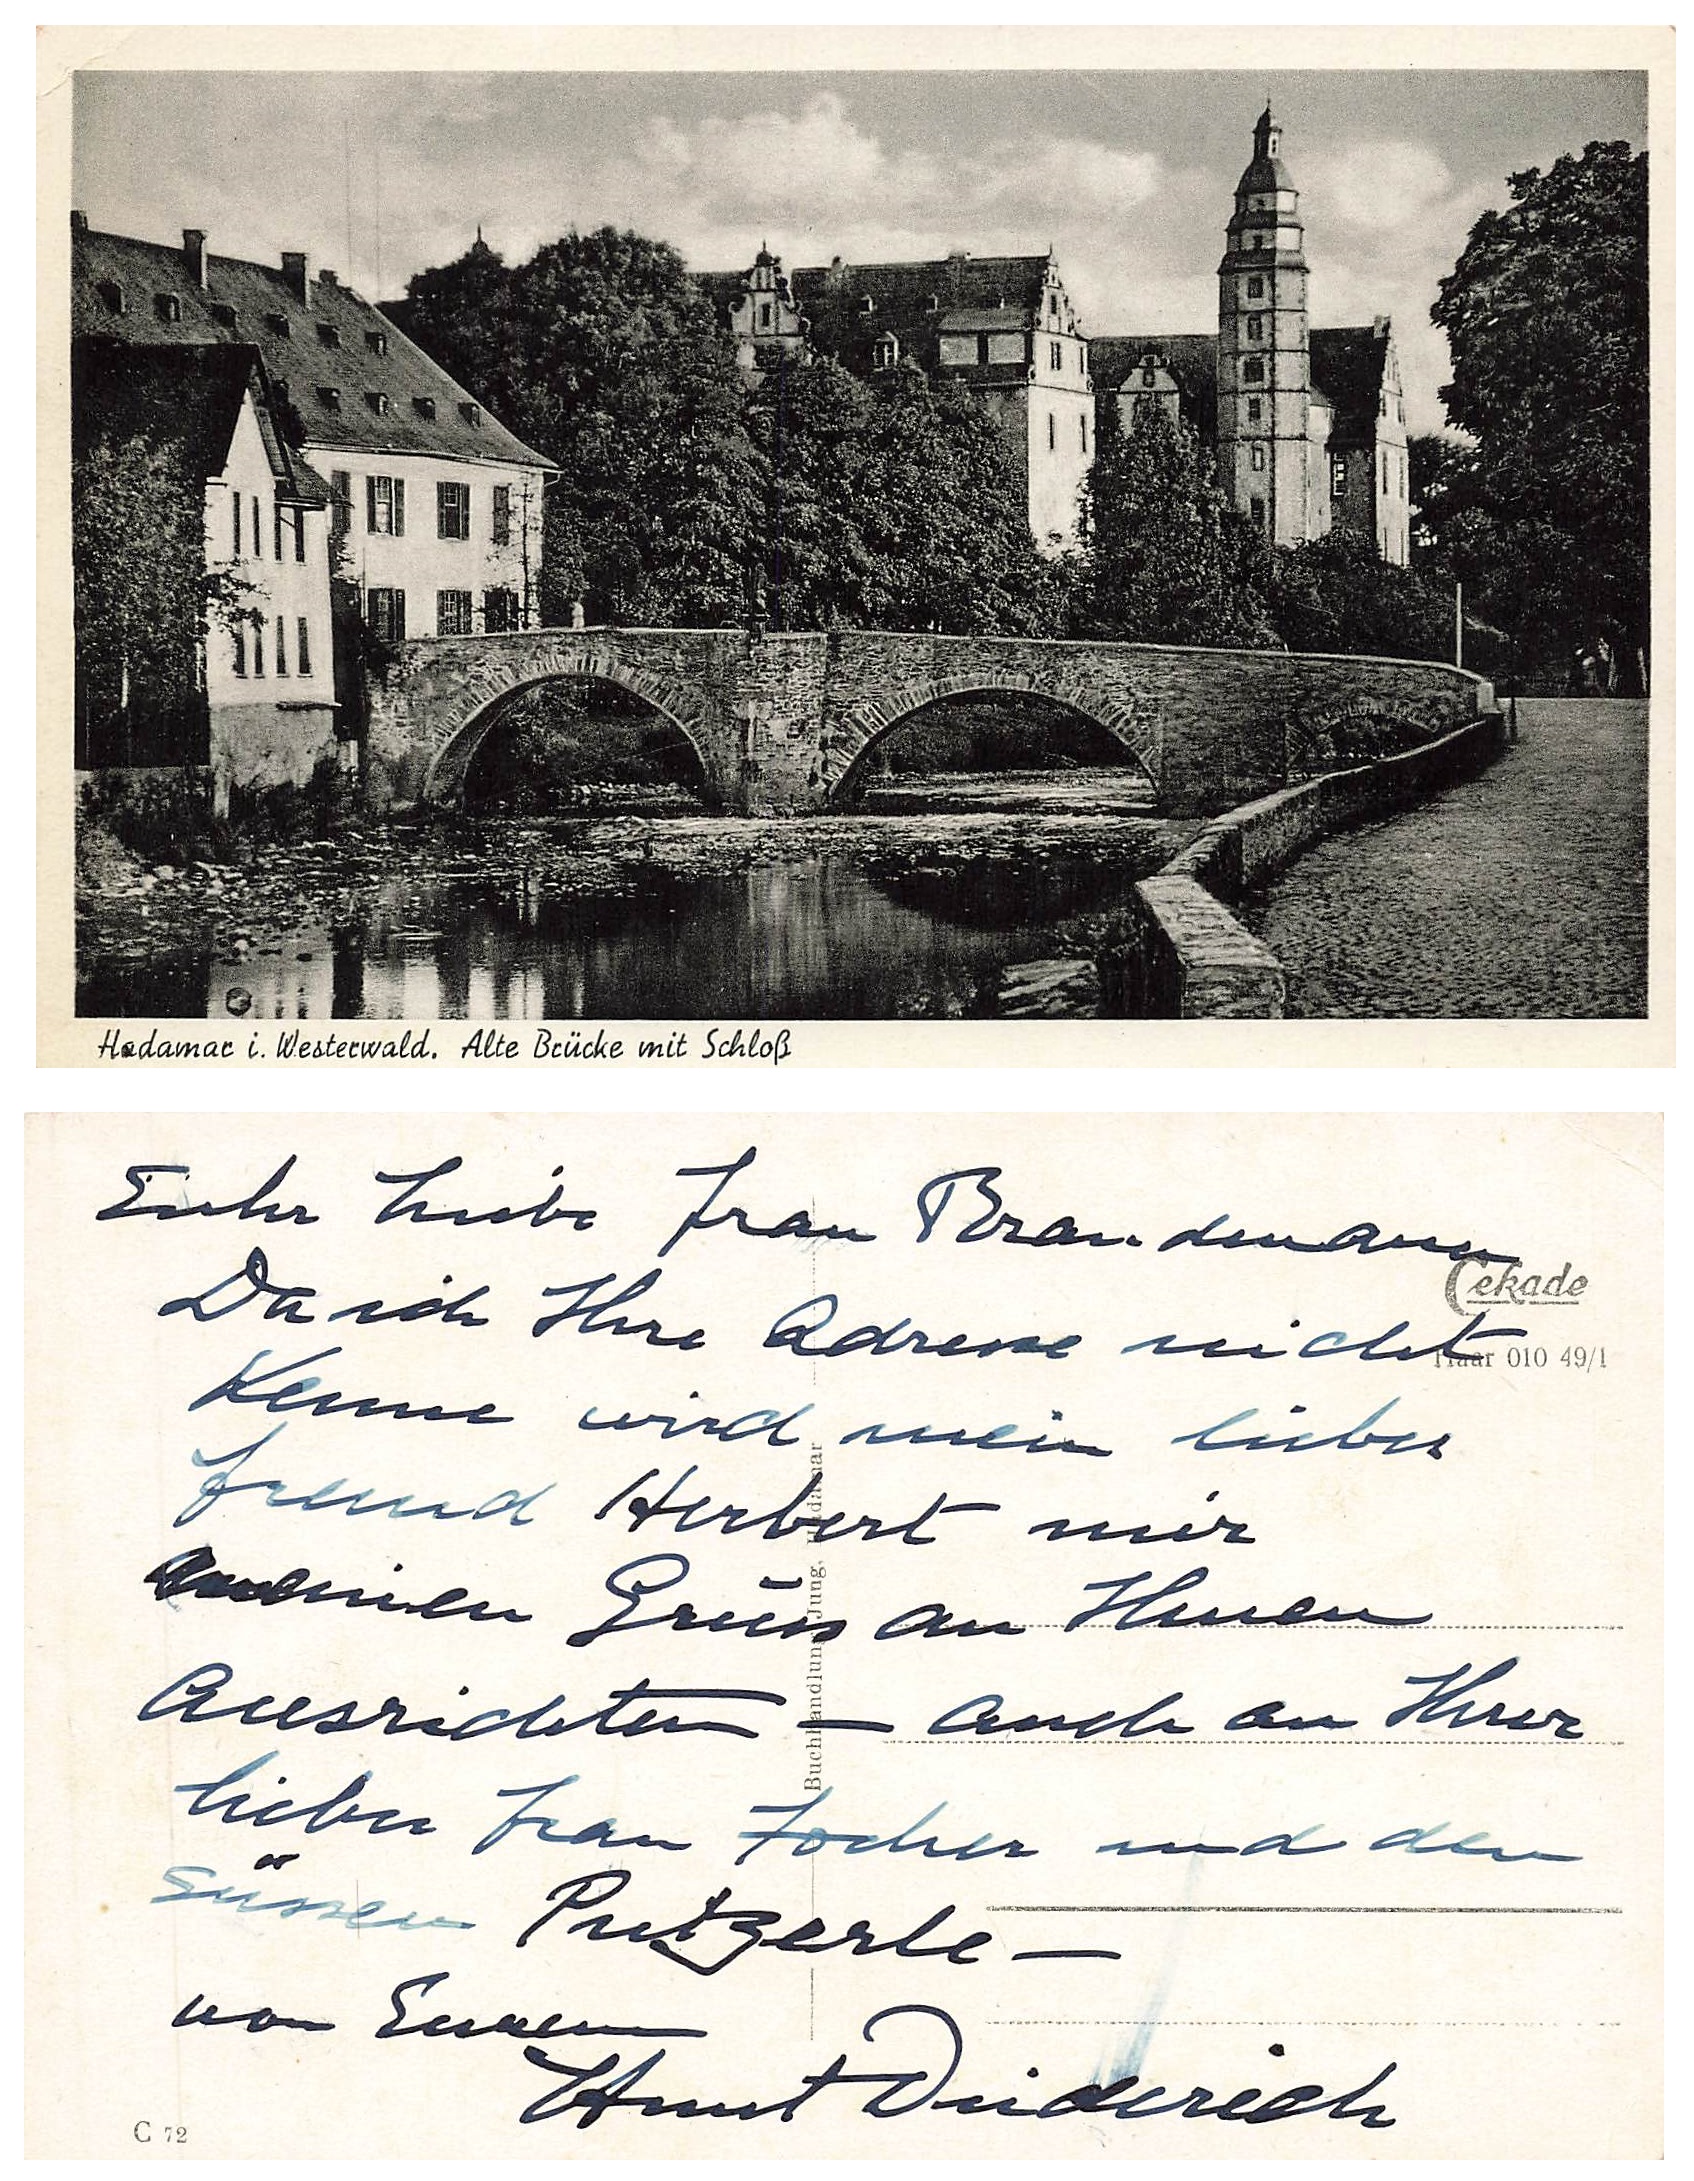 Hadamar i. Westerwald. Alte Brücke mit Schloß
Sehr liebe Frau Brandemann
Cekade
Da ich Ihre Adresse nicht
Haar 010 49/1
Kenne wird mein lieber
Freund Herbert mir
meinen Grüss an Ihnen
Ausrichten — auch an Ihrer
lieben Frau Tocher und den
Süssen Putzerle —
von Eurem
Diederich
Buchhandlung Jung, Hadamar
C 72